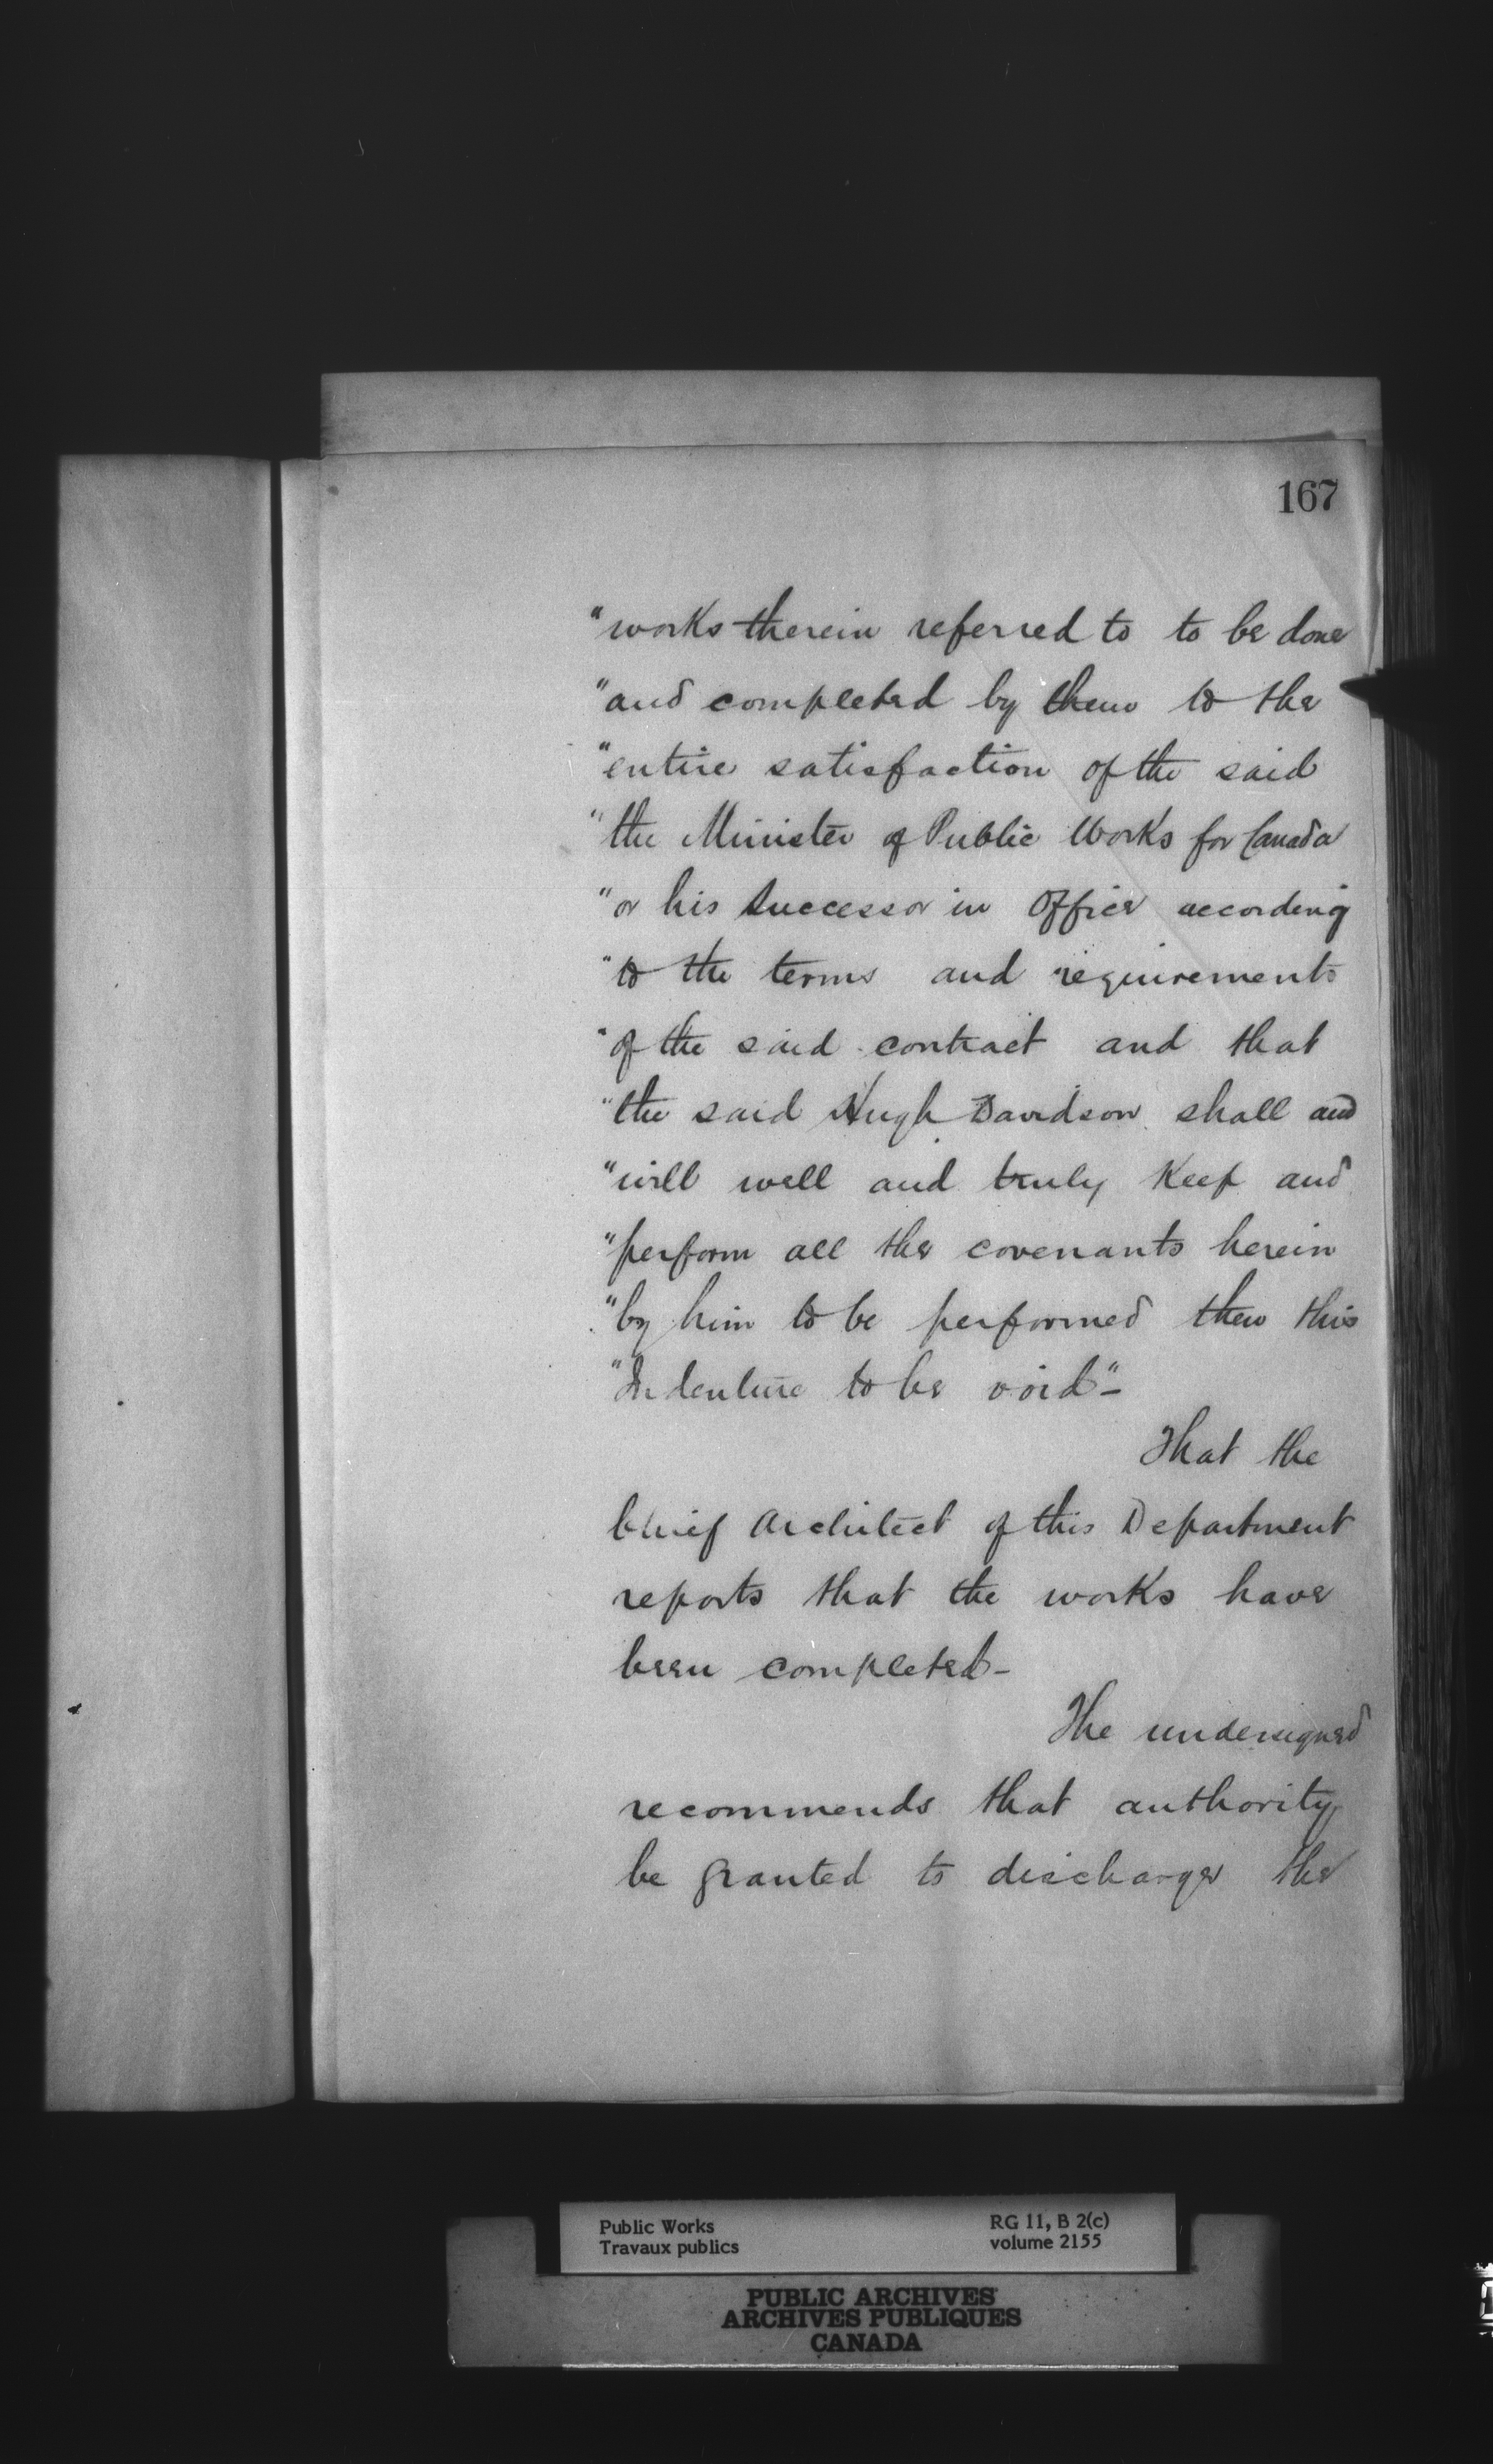 167
"works therein referred to to be done
"and completed by them to the
"entire satisfaction of the said
"the Minister of Public Works for Canada
"or his Successor in Office according
"to the terms and requirements
"of the said contract and that
"the said Hugh Davidson shall and
"will well and truly Keep and
"perform all the covenants herein
"by him to be performed then this
"Indenture to be void"-
That the
Chief Architect of this Department
reports that the works have
been completed-
The undersigned
recommends that authority
be granted to discharge the
Public Works
Travaux publics
RG 11, B 2(c)
volume 2155
PUBLIC ARCHIVES
ARCHIVES PUBLIQUES
CANADA